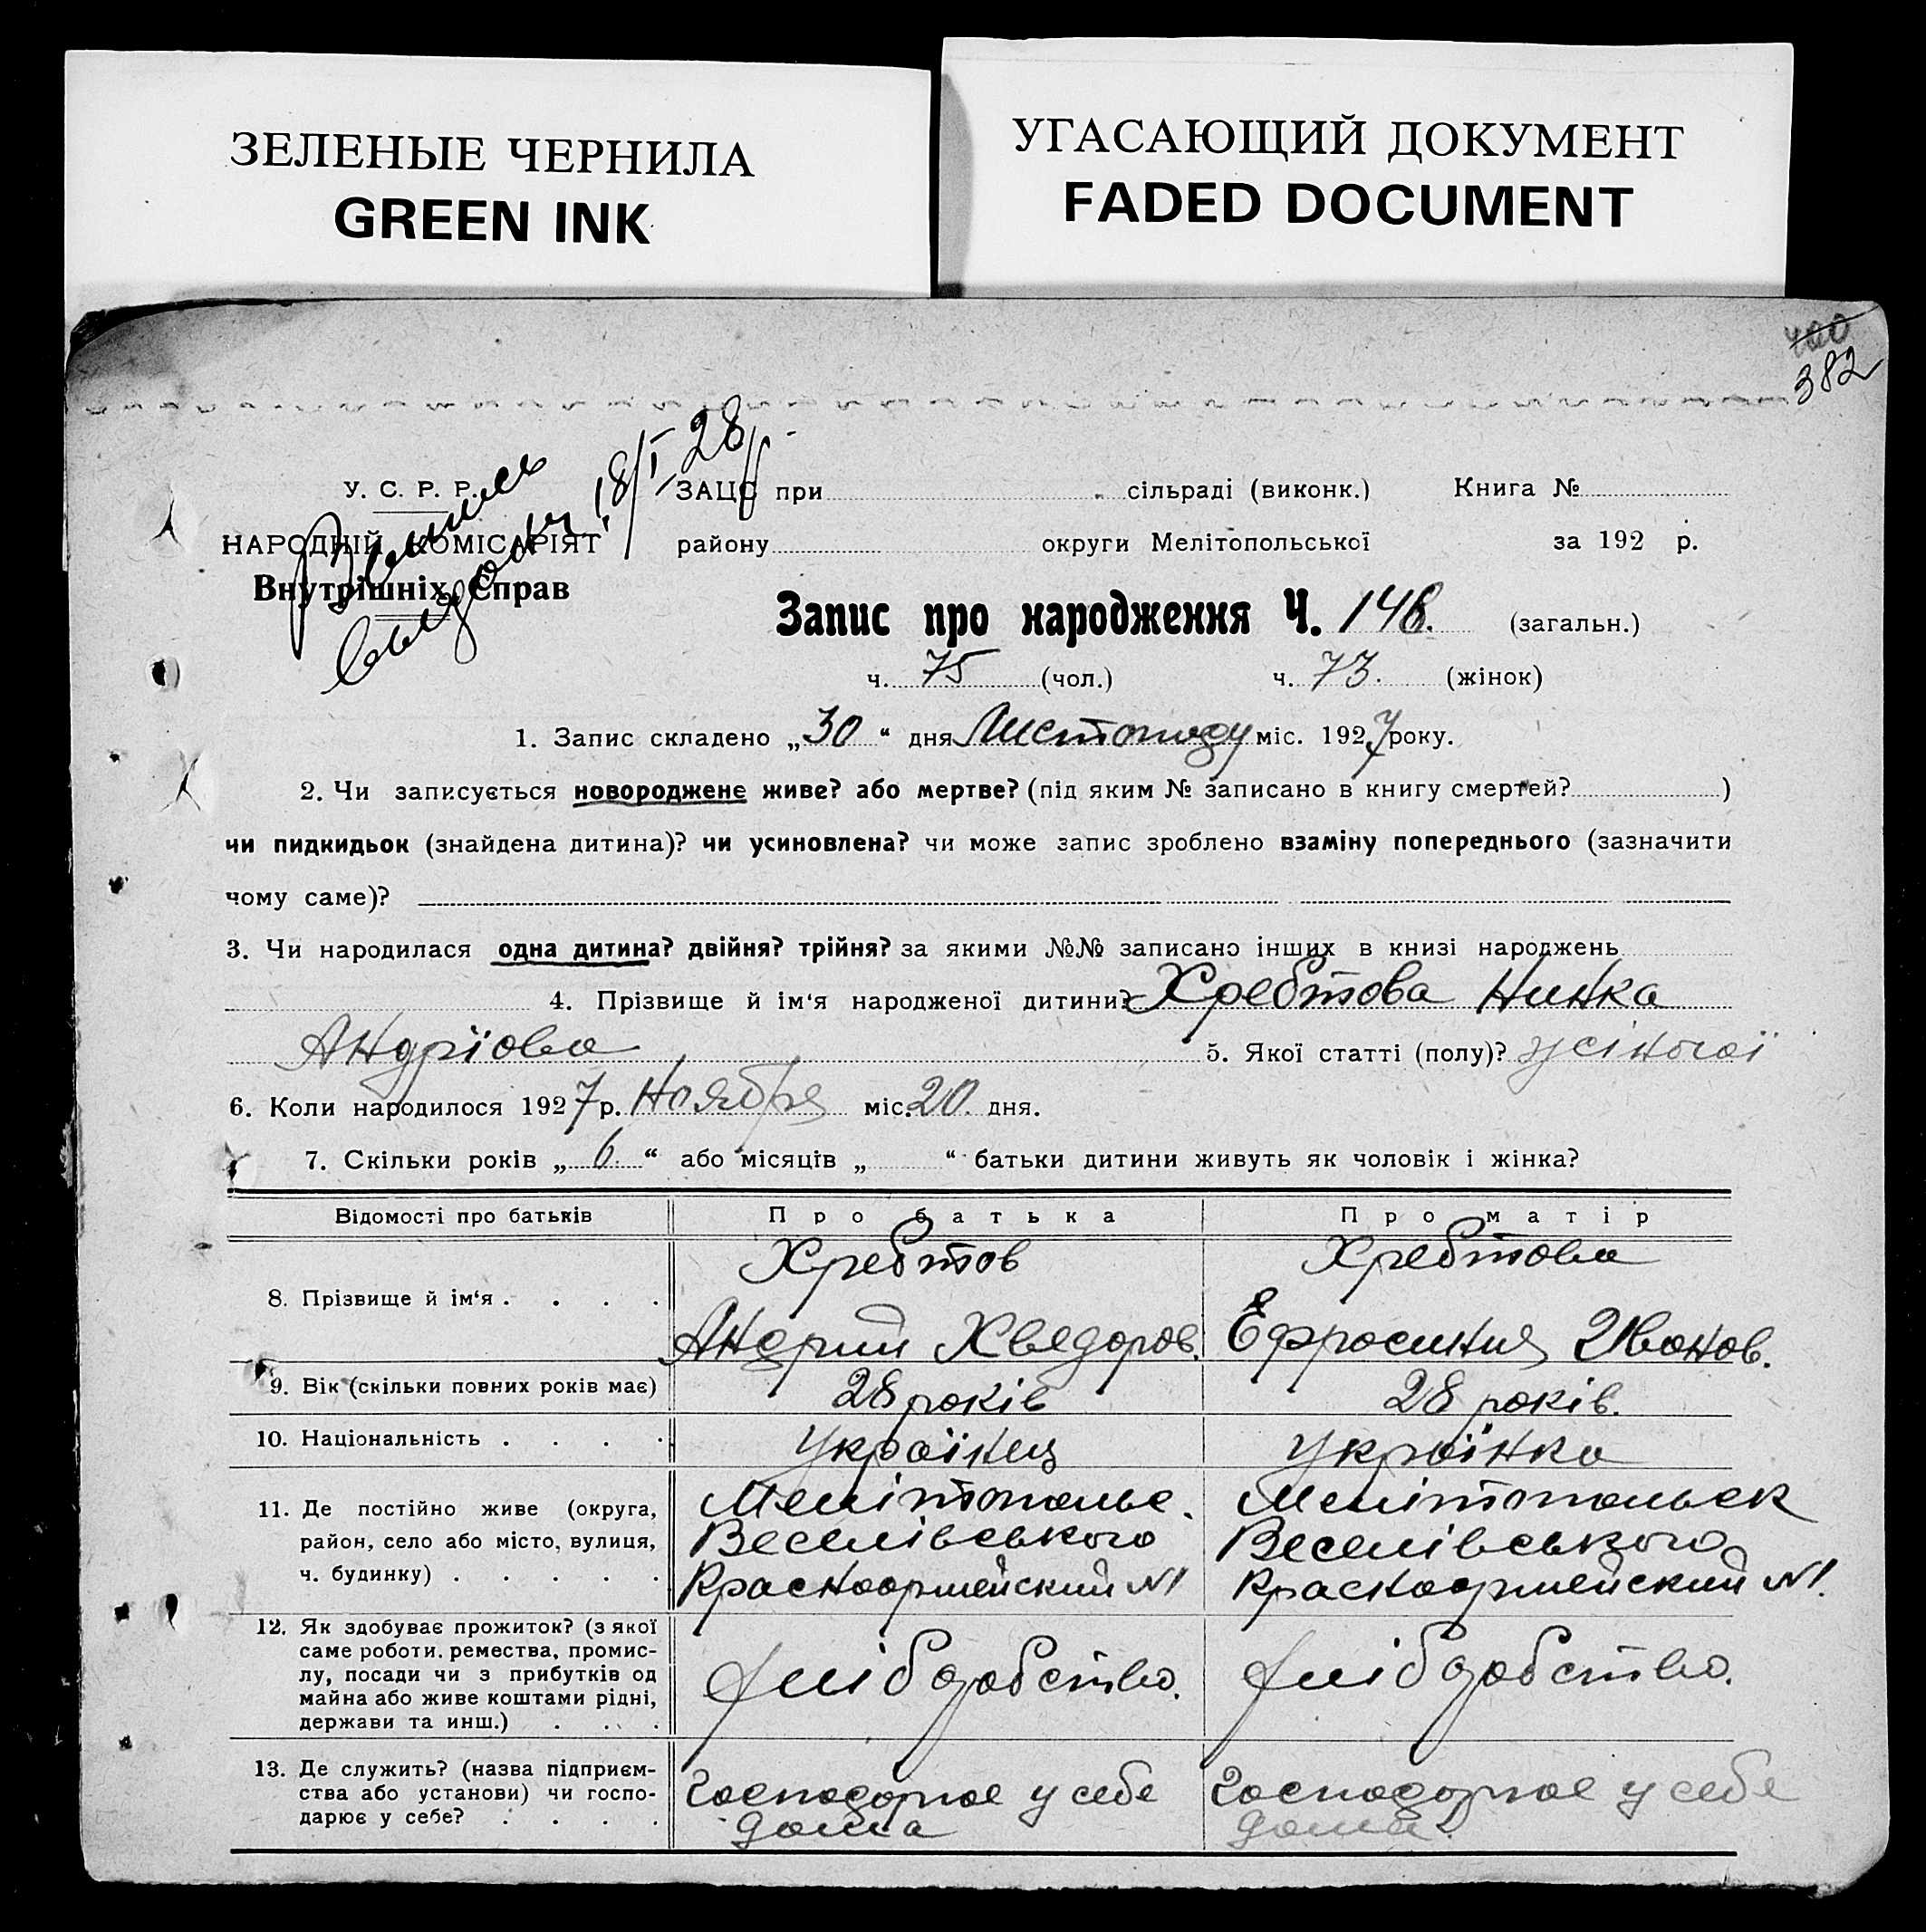 ЗЕЛЕНЫЕ ЧЕРНИЛА
GREEN INK
УГАСАЮЩИЙ ДОКУМЕНТ
FADED DOCUMENT
400
382
18/I 28
У. С. Р. Р.
НАРОДНІЙ КОМІСАРІЯТ
Внутрішніх Справ
ЗАЦС при сільраді (виконк.) Книга №
району округи Мелітопольської за 192 р.
Запис про народження Ч. 148. (загальн.)
ч. 75 (чол.) ч. 73. (жінок)
1. Запис складено „30“ дня Листопаду міс. 1927 року.
2. Чи записується новороджене живе? або мертве? (під яким № записано в книгу смертей? )
чи пидкидьок (знайдена дитина)? чи усиновлена? чи може запис зроблено взаміну попереднього (зазначити
чому саме)?
3. Чи народилася одна дитина? двійня? трійня? за якими №№ записано інших в книзі народжень
4. Прізвище й ім‘я народженої дитини? Хребтова Нинка
Андріова 5. Якої статті (полу)? жіночої
6. Коли народилося 1927 р. Ноября міс. 20 дня.
7. Скільки років „6“ або місяців „ “ батьки дитини живуть як чоловік і жінка?
Відомості про батьків Про батька Про матір
Хребтов Хребтова
8. Прізвище й ім‘я . . . .
Андрий Хведоров. Ефросиния Ивонов.
9. Вік (скільки повних років має) 28 років 28 років.
10. Національність . . . . Українец Українка
11. Де постійно живе (округа, Мелітопольс. Мелітопольск
район, село або місто, вулиця, Веселівського Веселівського
ч. будинку) . . . . . Красноармейский №1 Красноармейский №1.
12. Як здобуває прожиток? (з якої
саме роботи, ремества, промис-
лу, посади чи з прибутків од хлібдобство. хлібдобство.
майна або живе коштами рідні,
держави та инш.) . . . .
13. Де служить? (назва підприєм-
ства або установи) чи госпо- Господорює у себе Господорює у себе
дарює у себе? . . . . дома дома.